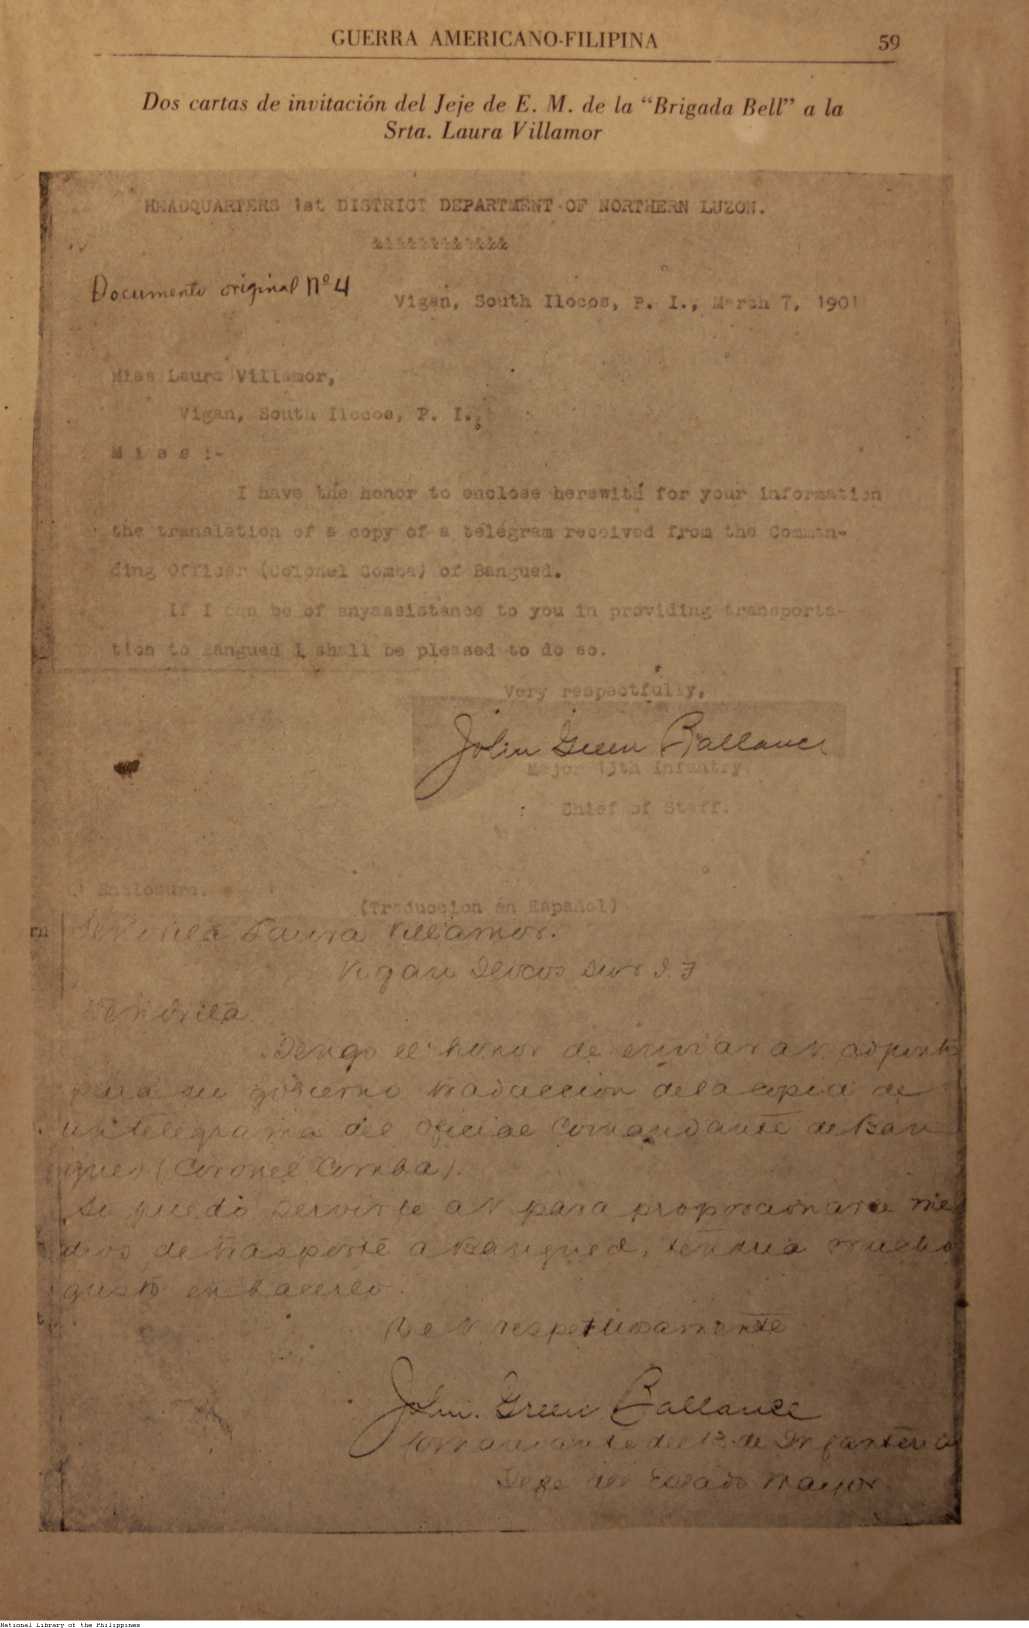 GUERRA AMERICANO-FILIPINA 59
Dos cartas de invitación del Jeje de E. M. de la "Brigada Bell" a la
Srta. Laura Villamor
HEADQUARTERS 1st DISTRICT DEPARTMENT OF NORTHERN LUZON.
Documento original Nº 4
Vigan, South Ilocos, P. I., March 7, 1901
Miss Laura Villamor,
Vigan, South Ilocos, P. I.,
M i s s :-
I have the honor to enclose herewith for your information
the translation of a copy of a telegram received from the Comman-
ding Officer (Colonel Comba) of Bangued.
If I can be of anyassistance to you in providing transporta-
tion to Bangued I shall be pleased to do so.
Very respectfully,
John Green Ballance
Major 13th Infantry.
Chief of Staff.
Enclosure.
(Traduccion en Español)
Señorita Laura Villamor.
Vigan Ilocos Sur I. F
Señorita
Tengo el honor de enviar a V. adjunto
para su gobierno traduccion de la copia de
un telegrama del Oficial Comandante de Ban
gued (Coronel Comba).
Si puedo servirle a V para proporcionarle me
dios de trasporte a Bangued, tendria mucho
gusto en hacerlo.
De V respetuosamente
John Green Ballance
Comandante del 13 de Infanteria
Jefe del Estado Mayor
National Library of the Philippines